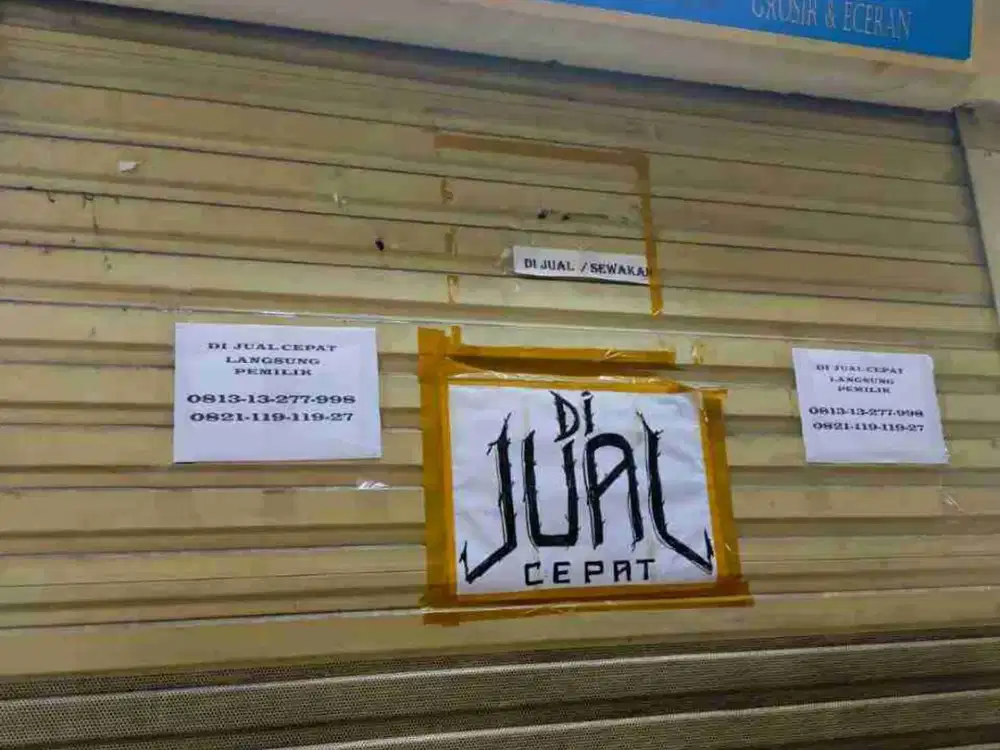 GROSIR & ECERAN
DI JUAL / SEWAKAN
DI JUAL CEPAT
LANGSUNG
PEMILIK
0813-13-277-998
0821-119-119-27
Di
JUAL
CEPAT
DI JUAL CEPAT
LANGSUNG
PEMILIK
0813-13-277-998
0821-119-119-27